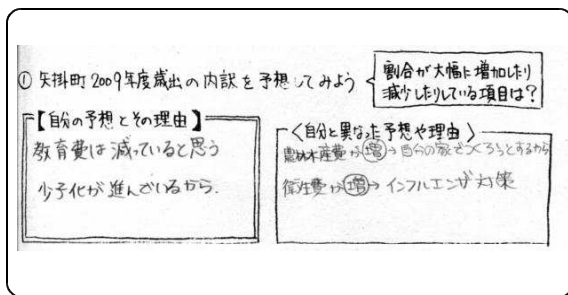 ① 矢掛町2009年度歳出の内訳を予想してみよう
割合が大幅に増加したり
減少したりしている項目は?
【自分の予想とその理由】
教育費は減っていると思う
少子化が進んでいるから.
〈自分と異なった予想や理由〉
農林水産費が増→自分の家でつくろうとするから
衛生費が増→インフルエンザ対策